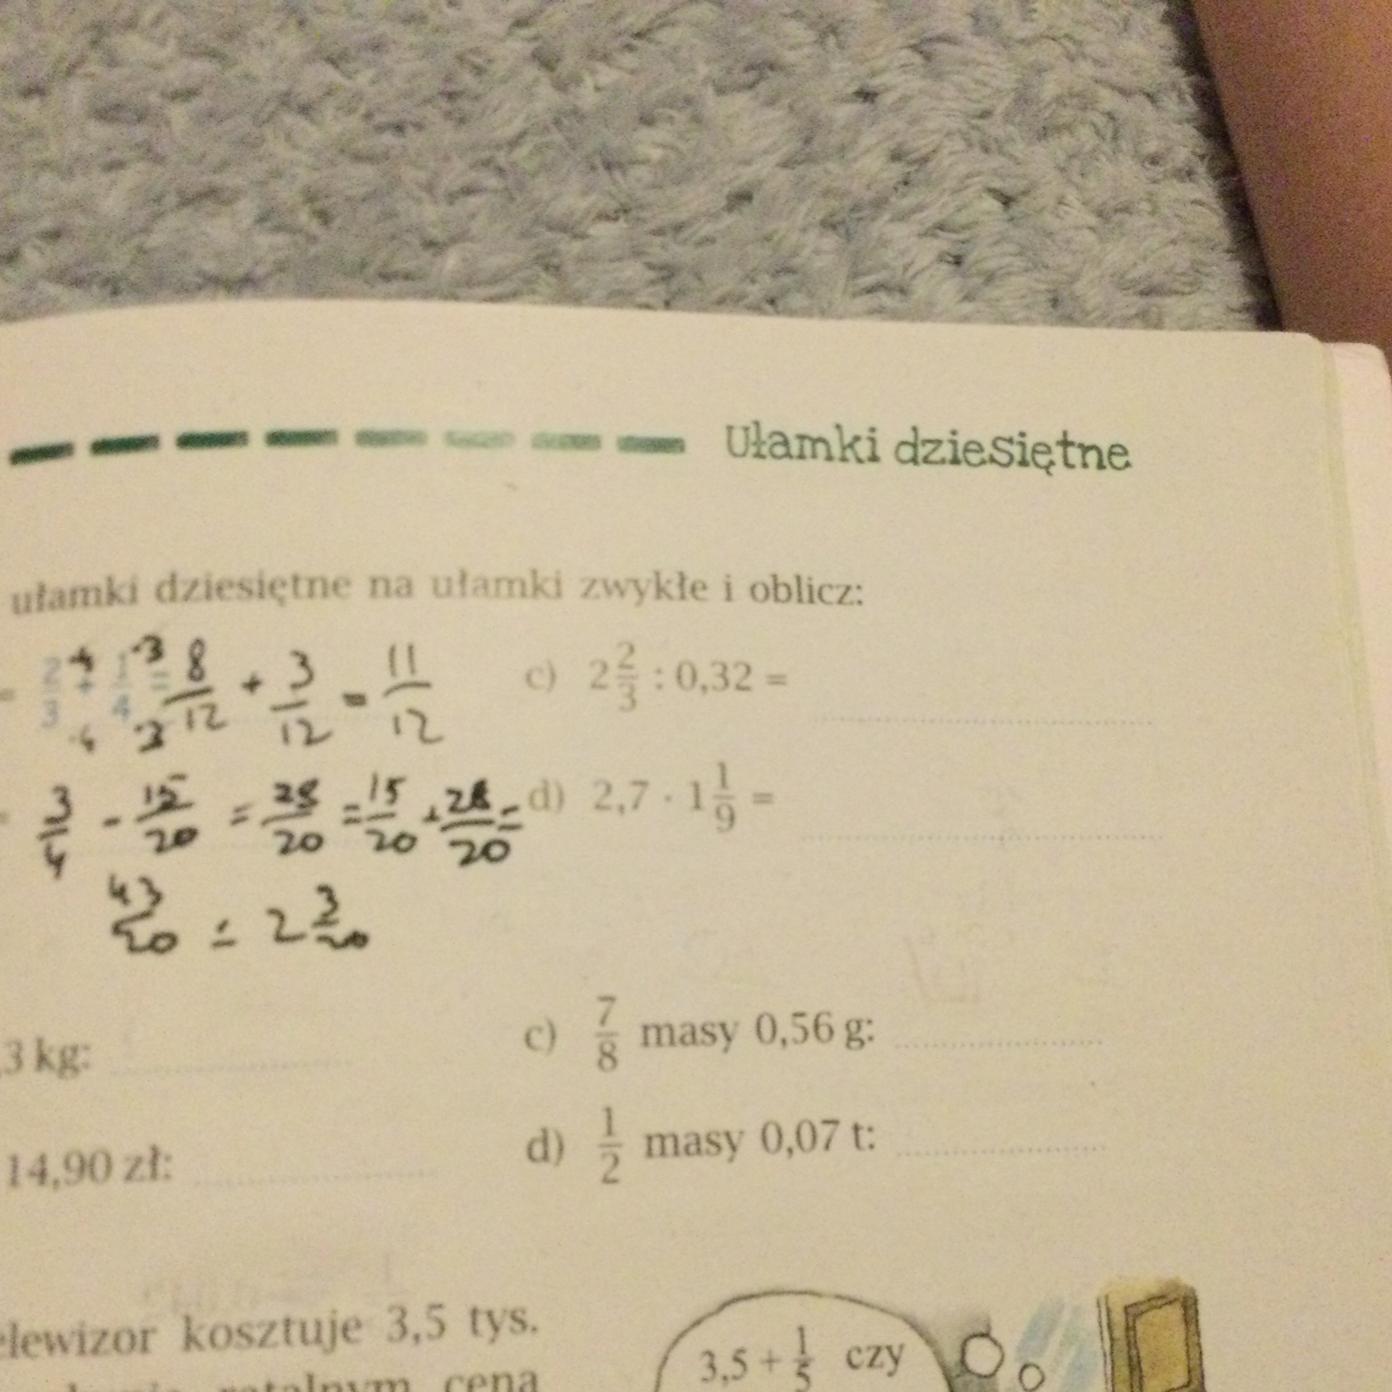 Ułamki dziesiętne
ułamki dziesiętne na ułamki zwykłe i oblicz:
= 2/3 + 1/4 = 8/12 + 3/12 = 11/12
·4 ·3
·4 3
c) 2 2/3 : 0,32 =
3/4 - 15/20 = 28/20 = 15/20 + 28/20 =
43/20 = 2 3/20
d) 2,7 · 1 1/9 =
3 kg:
c) 7/8 masy 0,56 g:
14,90 zł:
d) 1/2 masy 0,07 t:
elewizor kosztuje 3,5 tys.
ratalnym cena
3,5 + 1/5 czy